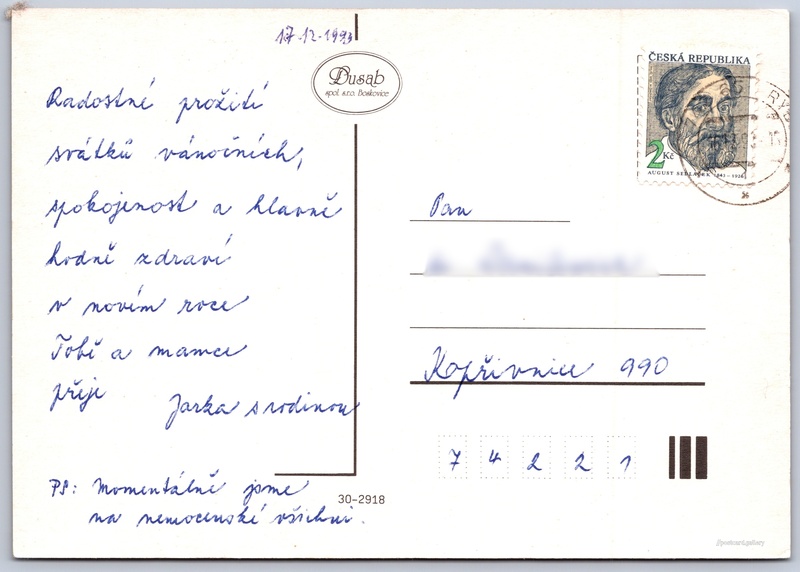 17.12.1993
Dusab
spol. s.r.o. Boskovice
Radostné prožití
svátků vánočních,
spokojenost a hlavně
hodně zdraví
v novém roce
Tobě a mamce
přeje
Jarka s rodinou
PS: Momentálně jsme
na nemocenské všichni.
30-2918
ČESKÁ REPUBLIKA
2 Kč
AUGUST SEDLÁČEK
Pan
Kopřivnice 990
7 4 2 2 1